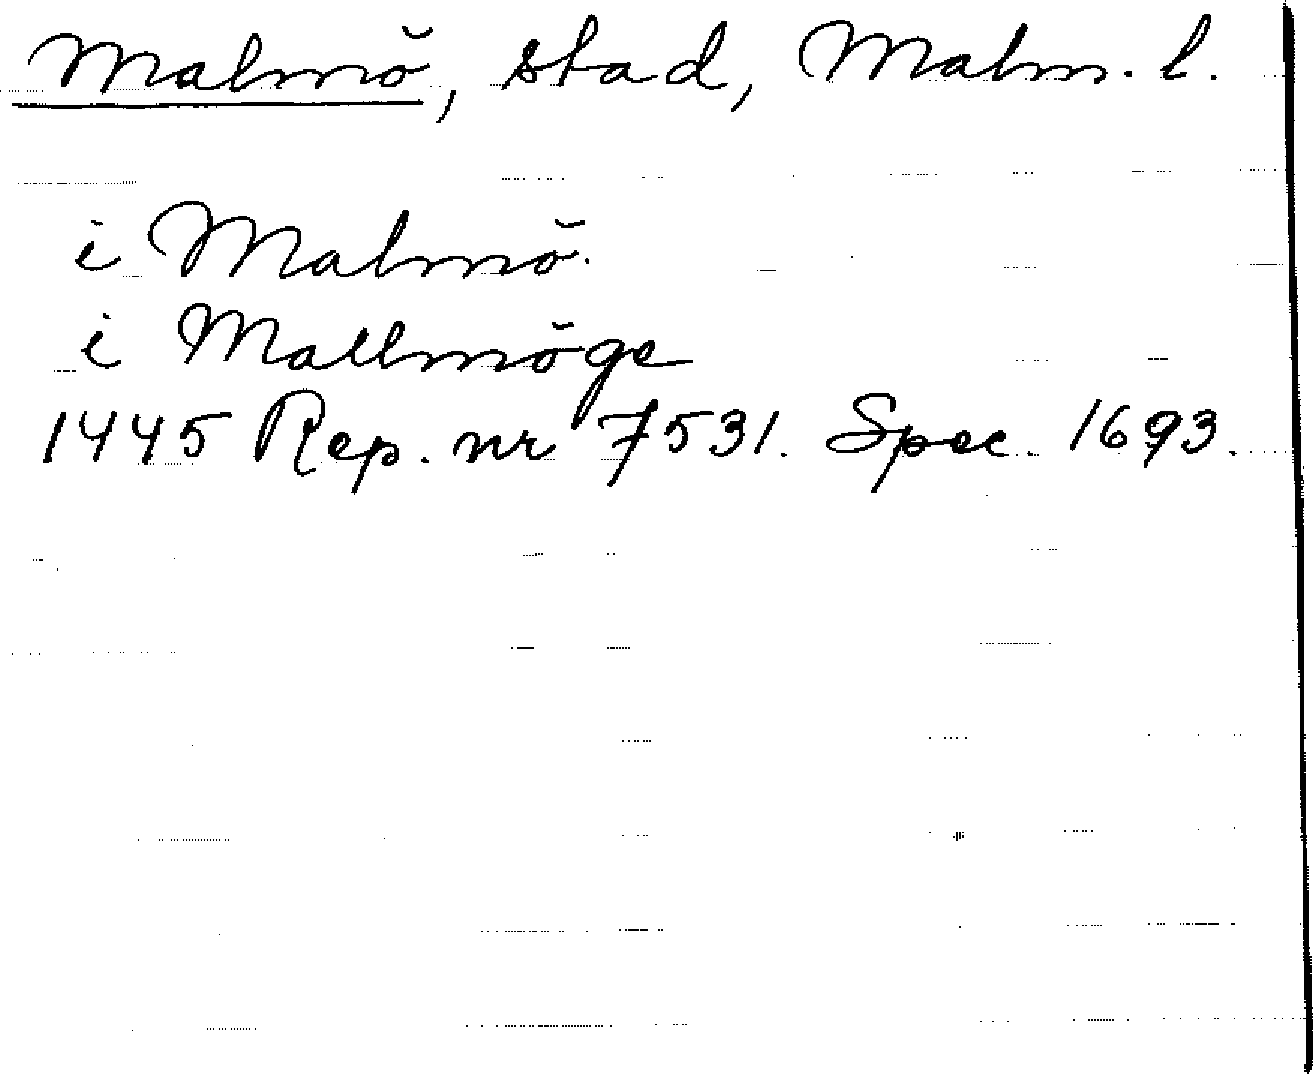 Malmö, stad, Malm. l.
i Malmö.
i Mallmöge
1445 Rep. nr 7531. Spec. 1693.